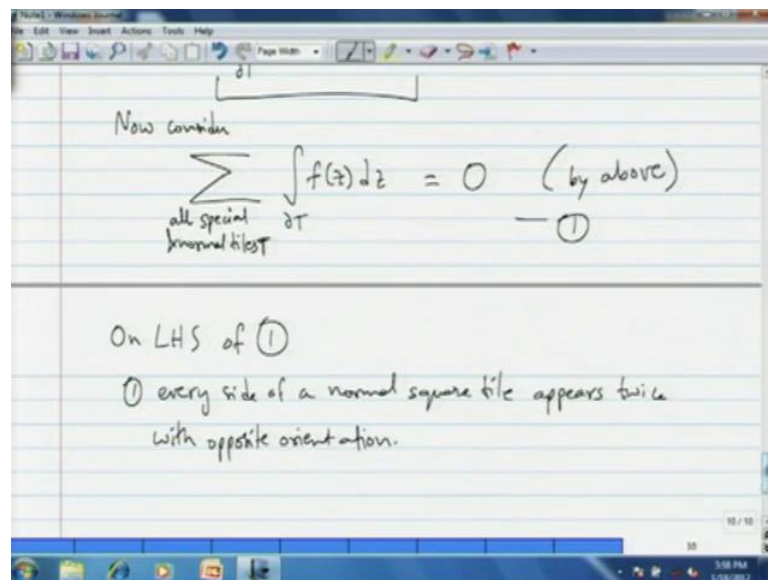 Note1 - Windows Journal
File Edit View Insert Actions Tools Help
Page Width
∂T
Now consider
∑ ∫ f(z) dz = 0 (by above)
all special ∂T — ①
& normal tiles T
On LHS of ①
① every side of a normal square tile appears twice
with opposite orientation.
10 / 10
10
3:58 PM